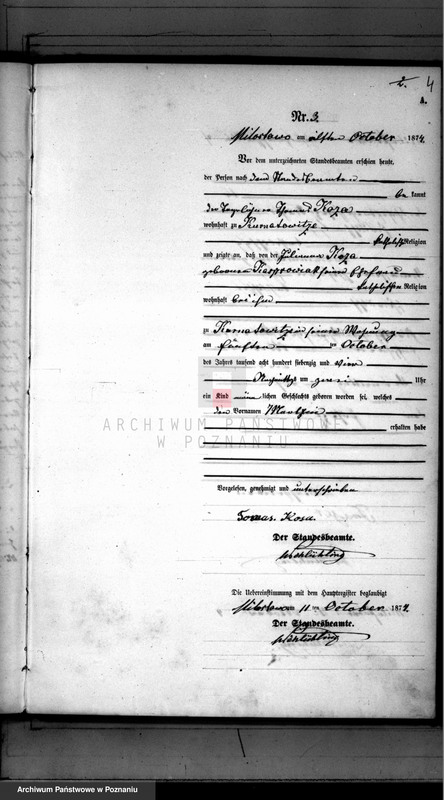 2. 4
A.
Nr. 3.
Miloslawo am elften October 1874.
Vor dem unterzeichneten Standesbeamten erschien heute,
der Person nach dem Standesbeamten
bekannt
der Tagelöhner Thomas Koza
wohnhaft zu
katholischer Religion
und zeigte an, daß von der Julianna Koza
geborenen Karpowiak seiner Ehefrau
katholischer Religion
wohnhaft bei ihm
zu in seiner Wohnung
am fünften ten October
des Jahres tausend acht hundert siebenzig und vier
Nachmittags um zwei Uhr
ein Kind männlichen Geschlechts geboren worden sei, welches
den Vornamen Martin
erhalten habe
ARCHIWUM PAŃSTWOWE
W POZNANIU
Vorgelesen, genehmigt und unterschrieben
Tomas. Kosa.
Der Standesbeamte.
Die Uebereinstimmung mit dem Hauptregister beglaubigt
Miloslawo am 11 ten October 1874.
Der Standesbeamte.
Archiwum Państwowe w Poznaniu